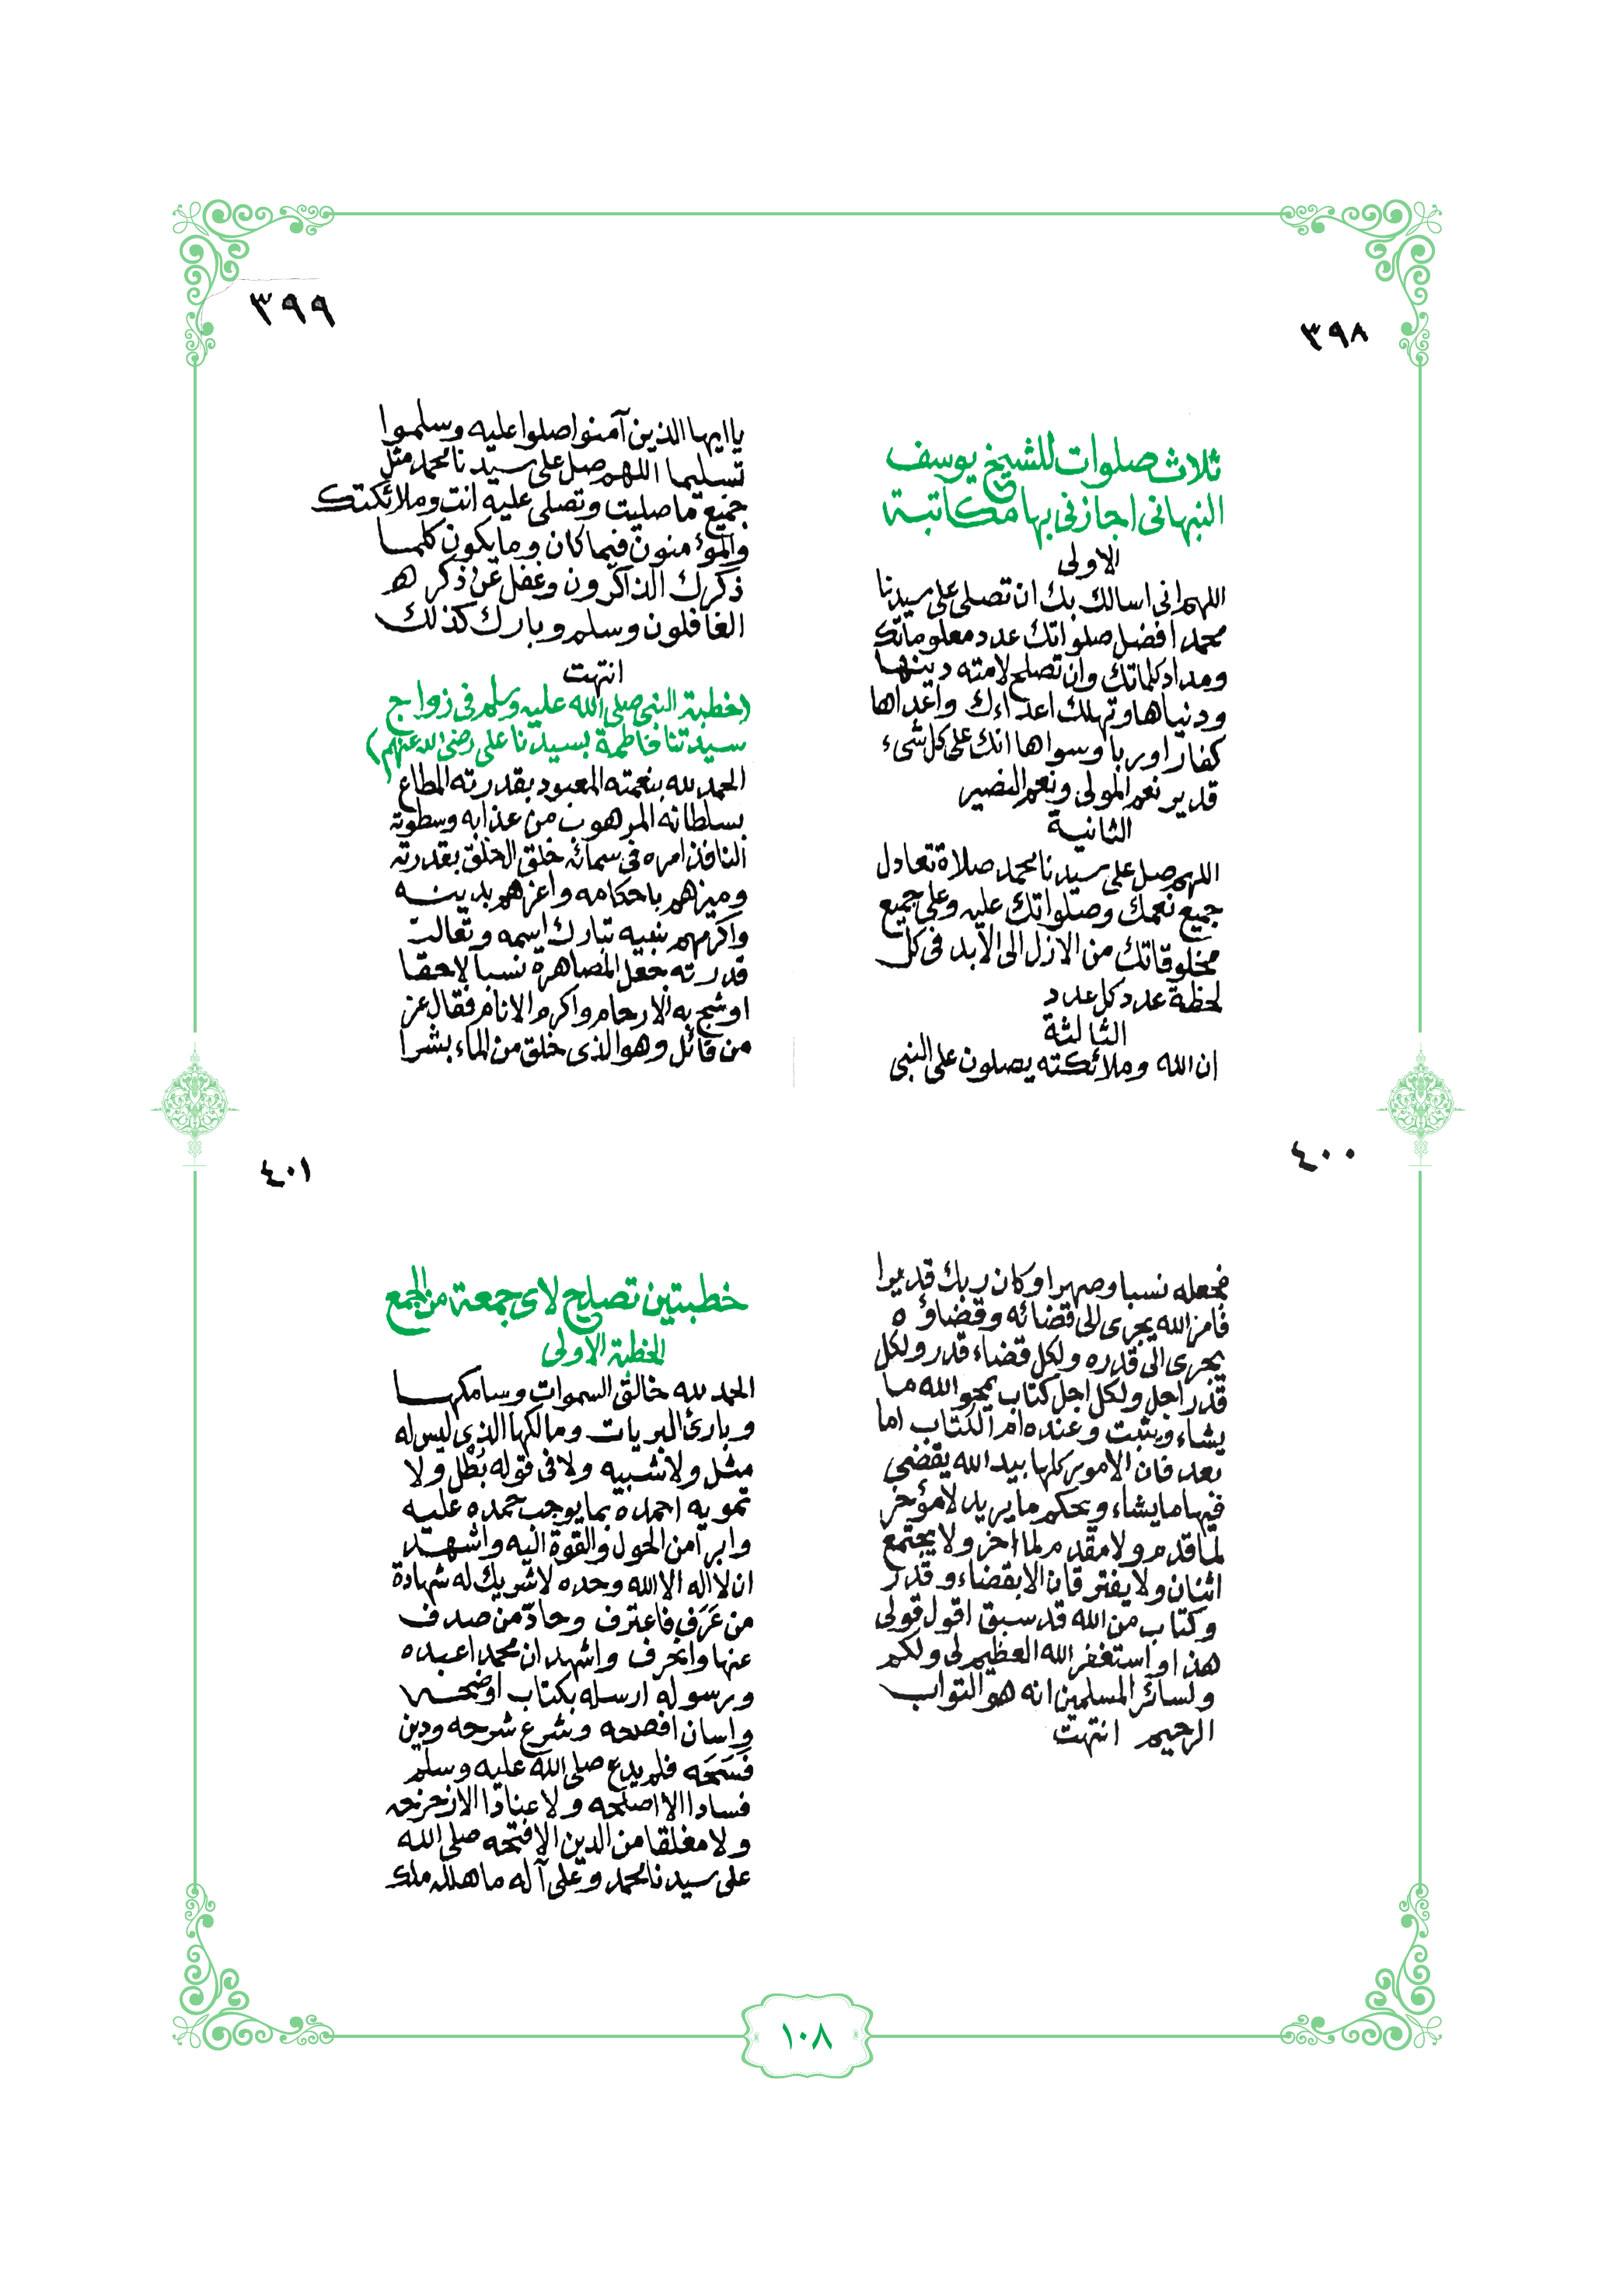 ٣٩٨
ثلاث صلوات للشيخ يوسف
النبهانى اجازنى بها مكاتبة
الاولى
اللهم انى اسالك بك ان تصلى على سيدنا
محمد افضل صلواتك عدد معلوماتك
ومداد كلماتك وان تصلح لامته دينها
ودنياها وتهلك اعداءك واعداها
كفارا وربا وسواها انك على كل شىء
قدير نعم المولى ونعم النصير
الثانية
اللهم صل على سيدنا محمد صلاة تعادل
جميع نعمك وصلواتك عليه وعلى جميع
مخلوقاتك من الازل الى الأبد فى كل
لحظة عدد كل عدد
الثالثة
ان الله وملائكته يصلون على النبى
٣٩٩
ياايها الذين آمنوا صلوا عليه وسلموا
تسليما اللهم صل على سيدنا محمد مثل
جميع ما صليت وتصلى عليه انت وملائكتك
والمؤمنون فيما كان وما يكون كلما
ذكرك الذاكرون وغفل عن ذكره
الغافلون وسلم وبارك كذلك
انتهت
(خطبة النبى صلى الله عليه وسلم فى زواج
سيدتنا فاطمة بسيدنا على رضى الله عنهم)
الحمد لله بنعمته المعبود بقدرته المطاع
بسلطانه المرهوب من عذابه وسطوته
النافذ امره فى سمائه خلق الخلق بقدرته
وميزهم باحكامه واعزهم بدينه
واكرمهم بنبيه تبارك اسمه وتعالت
قدرته جعل المصاهرة نسبا لاحقا
اوشج به الارحام واكرم الانام فقال عز
من قائل وهو الذى خلق من الماء بشرا
٤٠٠
فجعله نسبا وصهرا وكان ربك قديرا
فامر الله يجرى الى قضائه وقضاؤه
يجرى الى قدره ولكل قضاء قدر ولكل
قدر اجل ولكل اجل كتاب يمحو الله ما
يشاء ويثبت وعنده ام الكتاب اما
بعد فان الامور كلها بيد الله يقضى
فيها ما يشاء ويحكم ما يريد لا مؤخر
لما قدم ولا مقدم لما اخر ولا يجتمع
اثنان ولا يفترقان الا بقضاء وقدر
وكتاب من الله قد سبق اقول قولى
هذا واستغفر الله العظيم لى ولكم
ولسائر المسلمين انه هو التواب
الرحيم انتهت
٤٠١
خطبتين تصلح لاى جمعة من الجمع
الخطبة الاولى
الحمد لله خالق السموات وسامكها
وبارئ البريات ومالكها الذى ليس له
مثل ولا شبيه ولا فى قوله بُطْل ولا
تمويه احمده بما يوجب حمده عليه
وابرأ من الحول والقوة اليه واشهد
ان لا اله الا الله وحده لا شريك له شهادة
من عَرَف فاعترف وحادّ من صدف
عنها وانحرف واشهد ان محمدا عبده
ورسوله ارسله بكتاب اوضحه
ولسان افصحه وشرع شرحه ودين
فَسَّحَه فلم يدع صلى الله عليه وسلم
فسادا الا اصلحه ولا عنادا الا زحزحه
ولا مغلقا من الدين الا فتحه صلى الله
على سيدنا محمد وعلى آله ما هلله ملك
١٠٨